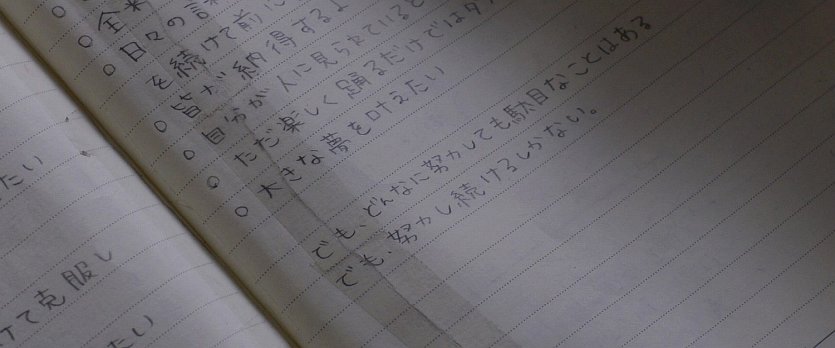 たい
けて克服し
たい
○
○ 全
○ 日々の
を続けて前に
○ 皆が納得するよ
○ 自分が人に見られていると
○ ただ楽しく踊るだけでは
○ 大きな夢を叶えたい
でも、どんなに努力しても駄目なことはある
でも努力し続けるしかない。